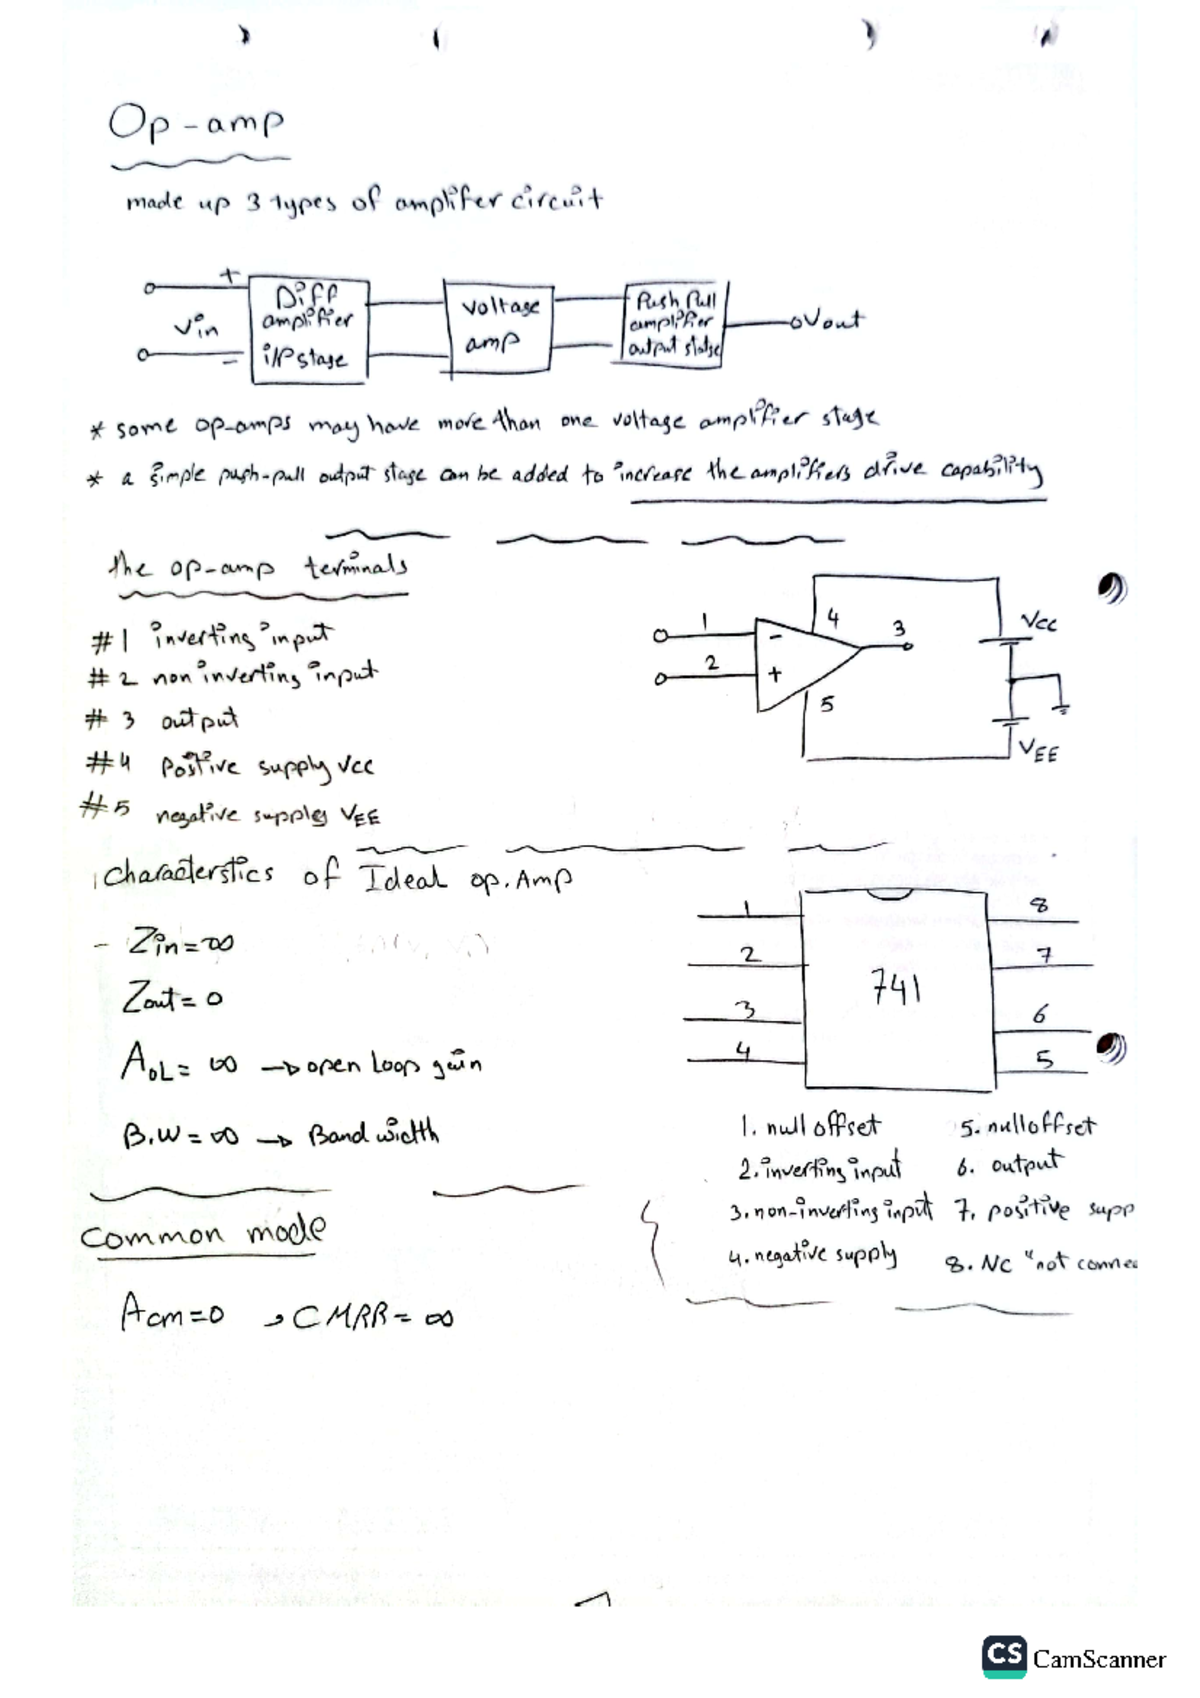 Op-amp
made up 3 types of amplifer circuit
+
Vin
-
Diff
amplifier
i/P stage
voltage
amp
Push Pull
amplifier
output stage
Vout
* some op-amps may have more than one voltage amplifier stage
* a simple push-pull output stage can be added to increase the amplifiers drive capability
the op-amp terminals
#1 inverting input
#2 non inverting input
#3 output
#4 Positive supply Vcc
#5 negative supply VEE
1
2
-
+
4
3
5
Vcc
VEE
characterstics of Ideal op.Amp
- Zin=∞
Zout=0
AOL=∞ → open Loop gain
B.W=∞ → Band width
1
2
3
4
741
8
7
6
5
1. null offset
2. inverting input
3. non-inverting input
4. negative supply
5. null offset
6. output
7. positive supp
8. NC "not connec
Common mode
Acm=0 , CMRR=∞
CS CamScanner